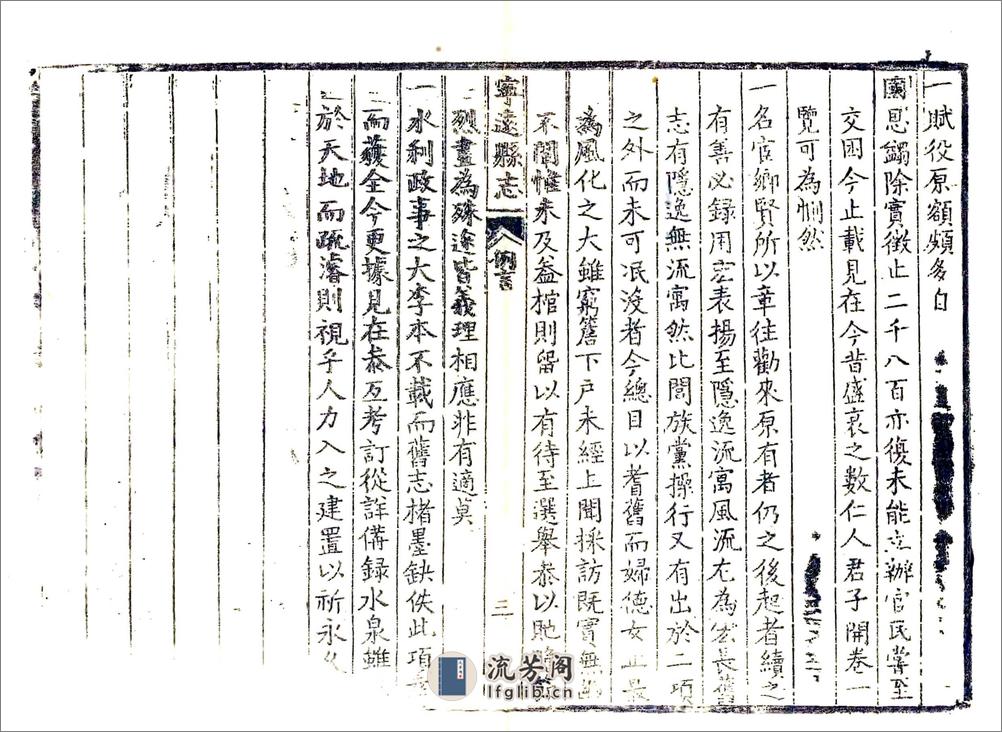 一賦役原額頗多自
國恩蠲除實徵止二千八百亦復未能立辦官民掌至
交困今止載見在今昔盛衰之數仁人君子開卷一
覽可為惻然
一名宦鄉賢所以章往勸來原有者仍之後起者續之
有善必録用宏表揚至隱逸流寓風流尢為宏長舊
志有隱逸無流寓然比閭族黨操行又有出於二項
之外而未可泯没者今總目以耆舊而婦德女止最
為風化之大雖窮簷下戶未經上聞採訪既實無
不闡惟未及盖棺則留以有待至選舉叅以貤
寧遠縣志
例言
三
烈畫為殊途皆義理相應非有適莫
一水利政事之大李本不載而舊志楮墨缺佚此項
而薉全今更據見在叅互考訂從詳偹録水泉雖
於天地而疏濬則視乎人力入之建置以祈永久
流芳阁
lfglib.cn